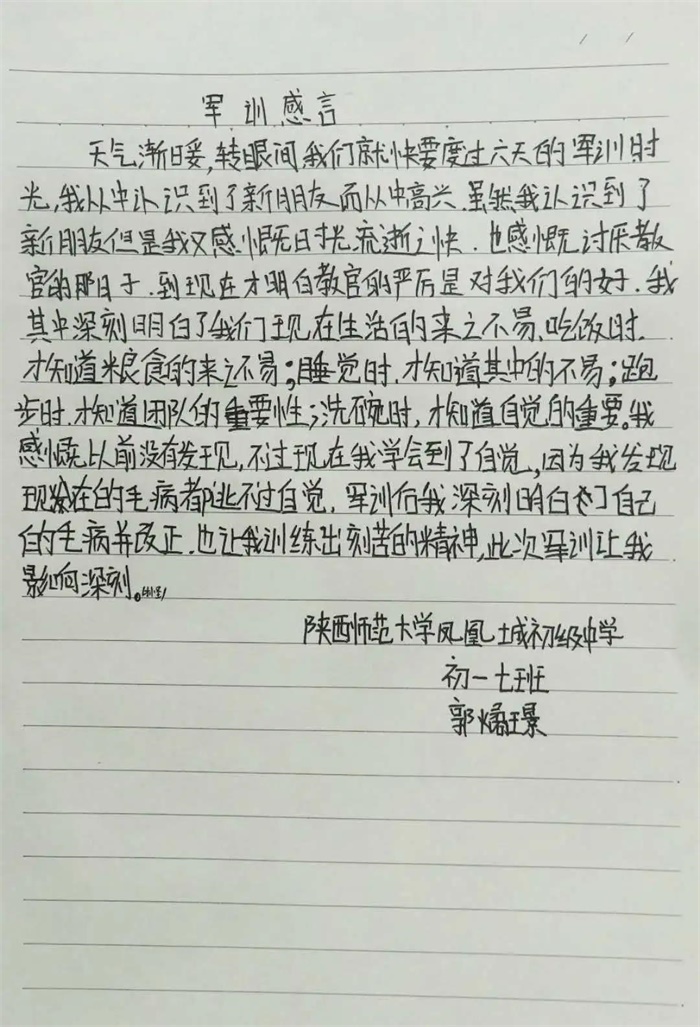 军训感言
天气渐暖,转眼间我们就快要度过六天的军训时
光,我从中认识到了新朋友而从中高兴.虽然我认识到了
新朋友但是我又感慨时光流逝之快.也感慨讨厌教
官的那日子.到现在才明白教官的严厉是对我们的好.我
其中深刻明白了我们现在生活的来之不易、吃饭时.
才知道粮食的来之不易;睡觉时.才知道其中的不易;跑
步时.才知道团队的重要性;洗碗时,才知道自觉的重要。我
感慨以前没有发现,不过现在我学会到了自觉,因为我发现
现在的毛病都逃不过自觉,军训后我深刻明白了自己
的毛病并改正.也让我训练出刻苦的精神,此次军训让我
影响深刻。
陕西师范大学凤凰城初级中学
初一七班
郭燏璟